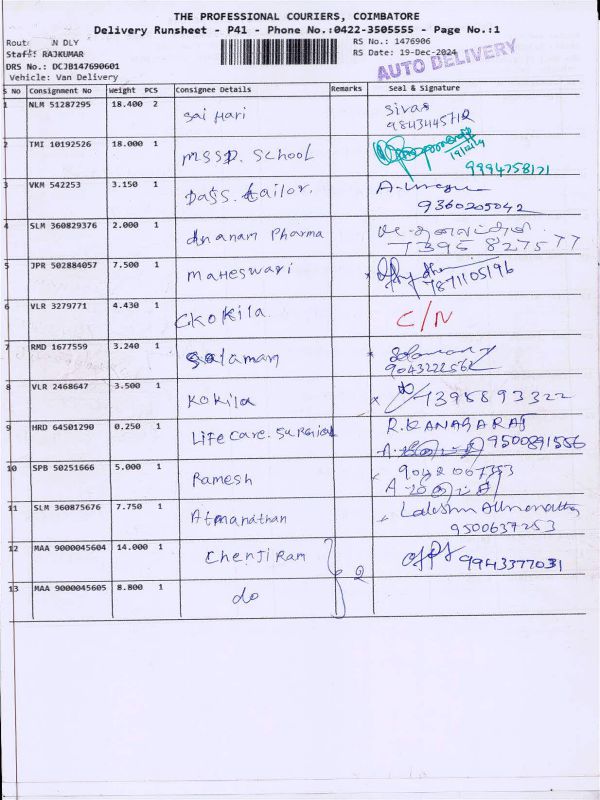 THE PROFESSIONAL COURIERS, COIMBATORE
Delivery Runsheet - P41 - Phone No.:0422-3505555 - Page No.:1
Route: N DLY RS No.: 1476906
Staff: RAJKUMAR RS Date: 19-Dec-2024
AUTO DELIVERY
DRS No.: DCJB147690601
Vehicle: Van Delivery
S No Consignment No Weight PCS Consignee Details Remarks Seal & Signature
1 NLM 51287295 18.400 2 Sai Hari Sivas
9843445712
2 TMI 10192526 18.000 1 MSSD. School 19/12/24
9994758171
3 VKM 542253 3.150 1 Dass. tailor.
9360205042
4 SLM 360829376 2.000 1 Ananam Pharma
7395827577
5 JPR 502884057 7.500 1 Maheswari
7871105196
6 VLR 3279771 4.430 1 CKOKila C/N
7 RMD 1677559 3.240 1 Salaman
9043222562
8 VLR 2468647 3.500 1 Kokila 7395893322
9 HRD 64501290 0.250 1 Life Care. Surgical R. KANAGARAJ
9500891556
10 SPB 50251666 5.000 1 Ramesh 9042067353
11 SLM 360875676 7.750 1 Atmanathan Lakshm
9500637253
12 MAA 9000045604 14.000 1 Chenji Ram 2 9943377031
13 MAA 9000045605 8.800 1 do